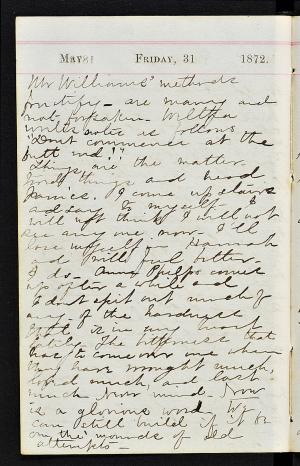 May 31 FRIDAY, 31 1872.
Mr Williams' methods
fructify - are many and
not forsaken.
writes note as follows
"Dont commence at the
butt end!"
Things are the matter.
things and head
I come up stairs
and say to myself I
will not think I will not
see any one now. I'll
lose myself in Hannah
and feel better.
I do - Anna Phelps comes
up after a while and
I dont spit out much of
any of the hardness
that is in my heart
lately. The bitterness that
has to come over one when
they have wrought much,
loved much, and lost
much Now mind. Now
is a glorious word We
can still build if it be
on the mounds of dead
attempts -